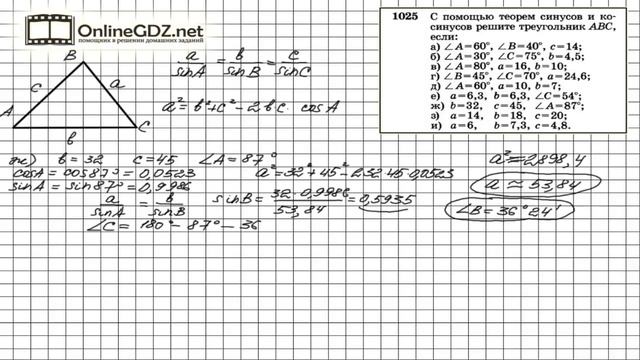 OnlineGDZ.net
помощник в решении домашних заданий
1025 С помощью теорем синусов и ко-
синусов решите треугольник ABC,
если:
а) ∠A=60°, ∠B=40°, c=14;
б) ∠A=30°, ∠C=75°, b=4,5;
в) ∠A=80°, a=16, b=10;
г) ∠B=45°, ∠C=70°, a=24,6;
д) ∠A=60°, a=10, b=7;
е) a=6,3, b=6,3, ∠C=54°;
ж) b=32, c=45, ∠A=87°;
з) a=14, b=18, c=20;
и) a=6, b=7,3, c=4,8.
B
c a
A b C
a/sinA = b/sinB = c/sinC
a² = b² + c² - 2bc · cosA
ж) b = 32 c = 45 ∠A = 87°
cosA = cos87° = 0,0523
sinA = sin87° = 0,9986
a² = 32² + 45² - 2·32·45·0,0523
a² = 2898,4
a ≈ 53,84
a/sinA = b/sinB
sinB = 32·0,9986/53,84 = 0,5935
∠B = 36°24'
∠C = 180° - 87° - 36